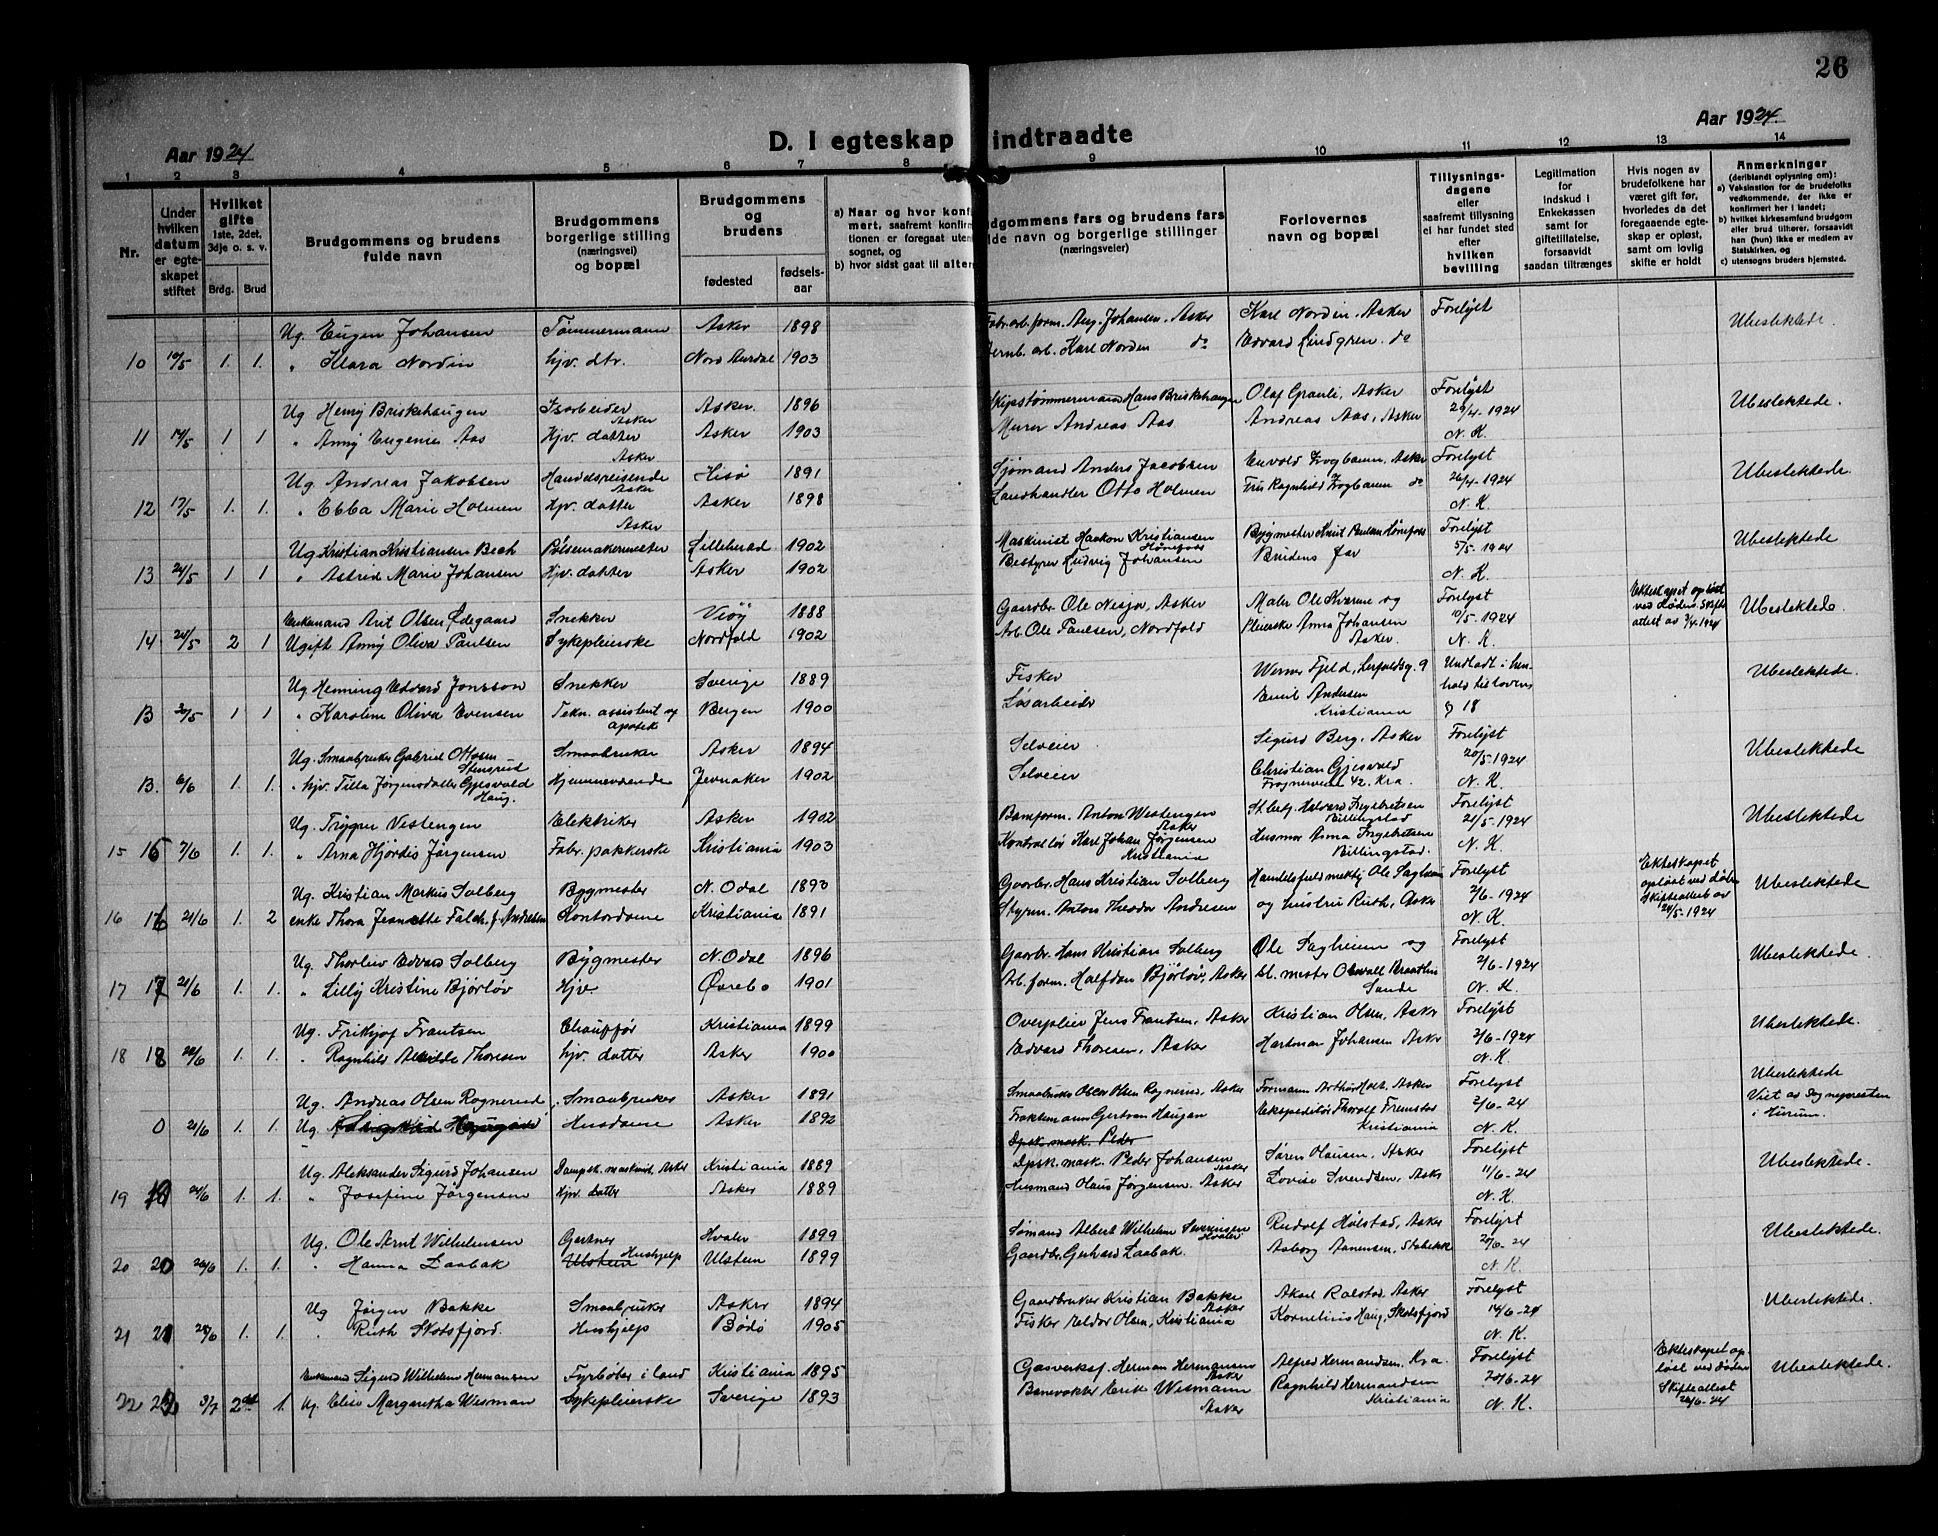 26
Aar 1924
D. I egteskap indtraadte
Aar 1924.
1 2 3 4 5 6 7 8 9 10 11 12 13 14
Nr.
Under hvilken datum er egteskapet stiftet
Hvilket gifte 1ste, 2det, 3dje o. s. v.
Brdg. Brud
Brudgommens og brudens fulde navn
Brudgommens borgerlige stilling (næringsvei) og bopæl
Brudgommens og brudens
fødested fødselsaar
a) Naar og hvor konfirmert, saafremt konfirmationen er foregaat utensognet, og
b) hvor sidst gaat til alter
dgommens fars og brudens fars
lde navn og borgerlige stillinger
(næringsveier)
Forlovernes navn og bopæl
Tillysningsdagene eller saafremt tillysning ei har fundet sted efter hvilken bevilling
Legitimation for Indskud i Enkekassen samt for giftetillatelse, forsaavidt saadan tiltrænges
Hvis nogen av brudefolkene har været gift før, hvorledes da det foregaaende egteskap er opløst, samt om lovlig skifte er holdt
Anmerkninger
(deriblandt oplysning om):
a) Vaksination for de brudefolks vedkommende, der ikke er konfirmert her i landet;
b) hvilket kirkesamfund brudgom eller brud tilhører, forsaavidt han (hun) ikke er medlem av Statskirken, og
c) utensogns bruders hjemsted.
Ug. Eugen Johansen Tømmermann Asker 1898 Fabr. arb. form. Aug. Johansen. Asker Karl Nordin. Asker Forelyst Ubeslektede.
10 10/5 1. 1. " Klara Nordin hjv. dtr. Nord Aurdal 1903 Jernb. arb. Karl Norden do Edvard Lindgren. do
Ug Henry Briskehaugen Isarbeider Asker Asker. 1896 Skipstømmermand Hans Briskehaugen Olaf Granli, Asker Forelyst Ubeslektede.
11 14/5 1 1 " Anny Eugenie Aas Hjv. datter Asker Asker 1903 Murer Andreas Aas Andreas Aas, Asker 29/4-1924 N. K.
Ug. Andreas Jakobsen Handelsreisende Asker Hisø 1891 Sjømand Anders Jacobsen Envold Frogbaum. Asker Forelyst Ubeslektede.
12 17/5 1. 1. " Ebba Marie Holmen Hjv. datter Asker Asker 1898 Landhandler Otto Holmen Fru Ragnhild Frogbaum do 26/4-1924 N. K.
Ug Kristian Kristiansen Bech Pølsemakermester Lilleherad 1902 Maskinist Haakon Kristiansen Hønefoss Bygmester Knut Paulsen Hønefoss Forelyst Ubeslektede
13 24/5 1 1 " Astrid Marie Johansen Hjv. datter Asker 1902 Bestyrer Hudvig Johansen Brudens far 5/5-1924 N. K.
Enkemand Arit Olsen Ødegaard Snekker Visøy 1888 Gaardbr. Ole Nesja, Asker Maler Ole Kvarme og Forelyst Ekteskapet opløst ved døden. Skifteattest av 7/4-1924 Ubeslektede
14 24/5 2 1 Ugift Anny Oliva Paulsen Sykepleierske Nordfold 1902 Arb. Ole Paulsen, Nordfold Pleierske Anna Johansen Asker. 10/5-1924 N. K.
Ug Henning Edvard Jonsson Snekker Sverige 1889 Fisker Werner Fjeld, Lerfaldsg. 9 Undladt i henhold til lovens § 18 Ubeslektede.
B 30/5 1 1 " Karoline Oliva Evensen Tekn. assistent og apotek Bergen 1900 Løsarbeider Emil Andersen Kristiania
Ug. Smaabruker Gabriel Ottosen Stensrud Smaabruker Asker 1894 Selveier Sigurd Berg. Asker Forelyst Ubeslektede
B. 6/6 1. 1. " hjv. Tilla Jørgensdatter Gjesvold Haug. Hjemmeværende Jevnaker 1902 Selveier Christian Gjesvold Frognerveien 42. Kra. 20/5-1924 N. K.
Ug. Trygve Vestengen Elektriker Asker 1902 Banform. Anton Westengen Asker St.betj. Halvard Ingebretsen Billingstad Forelyst Ubeslektede
15 7/6 1. 1. " Arna Hjørdis Jørgensen Fabr. pakkerske Kristiania 1903 Kontrollør Karl Johan Jørgensen Kristiania Husmor Anna Ingebretsen Billingstad. 21/5-1924 N. K.
Ug. Kristian Markus Solberg Bygmester N. Odal 1890 Gaardbr. Hans Kristian Solberg Handelsfuldmektig Ole Sagheim Forelyst Ekteskapet opløst ved døden Skifteattest av 24/5-1924 Ubeslektede
16 21/6 1. 2 enke Thora Jeanette Falch f. Andresen Kontordame Kristiania 1891 Styrm. Anton Theodor Andresen og hustru Ruth, Asker 2/6-1924 N. K.
Ug. Thorleiv Edvard Solberg Bygmester N. Odal 1896 Gaardbr. Hans Kristian Solberg Ole Sagheim og Forelyst Ubeslektede.
17 17 21/6 1. 1. " Lilly Kristine Bjørløv Hjv. Øvrebo 1901 Arb. form. Halfdan Bjørløv, Asker Sande 2/6-1924 N. K.
Ug. Frithjof Frantsen Chauffør Kristiania 1899 Overpleier Jens Frantsen, Asker Kristian Olsen, Asker Forelyst Ubeslektede.
18 18 22/6 1. 1. " Ragnhild Thoresen hjv. datter Asker 1900 Edvard Thoresen, Asker Hartman Johansen Asker 2/6-1924 N. K.
Ug. Andreas Olsen Rognerud Smaabruker Asker 1891 Smaabruker Olav Olsen Rognerud. Asker Formann Arthur Holt. Asker Forelyst Ubeslektede
0 21/6 1. 1. Ug. Husdame Asker 1892 Fraktemann Gertran Haugan Ekspeditør Thorolf Fremstad Kristiania 2/6-24 N. K. Viet av Sognepresten i Hurum.
Dpsk. mask. Peder
Ug. Aleksander Sigurd Johansen Dampsk. maskinist, Asker Kristiania 1889 Dpsk. mask. Peder Johansen Asker Søren Olausen, Asker Forelyst Ubeslektede.
19 24/6 1. 1. " Josefine Jørgensen Hjv. datter Asker 1889 Husmand Olaus Jørgensen. Asker Lovise Svendsen, Asker 11/6-24 N. K.
Ug. Ole Arnt Wilhelmsen Gartner Hvaler 1899 Sømand Albert Wilhelm Severinsen Hvaler Rudolf Hølstad, Asker Forelyst Ubeslektede.
20 20 26/6 1. 1. " Hanna Laabak Ulstein Hushjelp Ulstein 1899 Gaardbr. Gerhard Laabak. Aasborg Aanensen, Stabekk 20/6-24 N. K.
Ug Jørgen Bakke Smaabruker Asker 1894 Gaardbruker Kristian Bakke Asker Aksel Ralstad, Asker Forelyst Ubeslektede.
21 21 28/6 1. 1. " Ruth Skotsfjord. Hushjelp Bodø 1905 Fisker Eldor Olsen, Kristiania Kornelius Haug, Skotsfjord 14/6-24 N. K.
Enkemand Sigurd Wilhelm Hermansen Fyrbøter i land Kristiania 1895 Gasverksf. Herman Hermansen Asker Alfred Hermandsen, Kra. Forelyst Ekteskapet opløst ved døden Skifteattest 24/6-24 Ubeslektede.
22 3/7 2det 1. Ug. Elise Margaretha Wisman Sykepleierske Sverige 1893 Banvokter Erik Wismann Asker Ragnhild Hermandsen Kristiania 20/6-24 N. K.